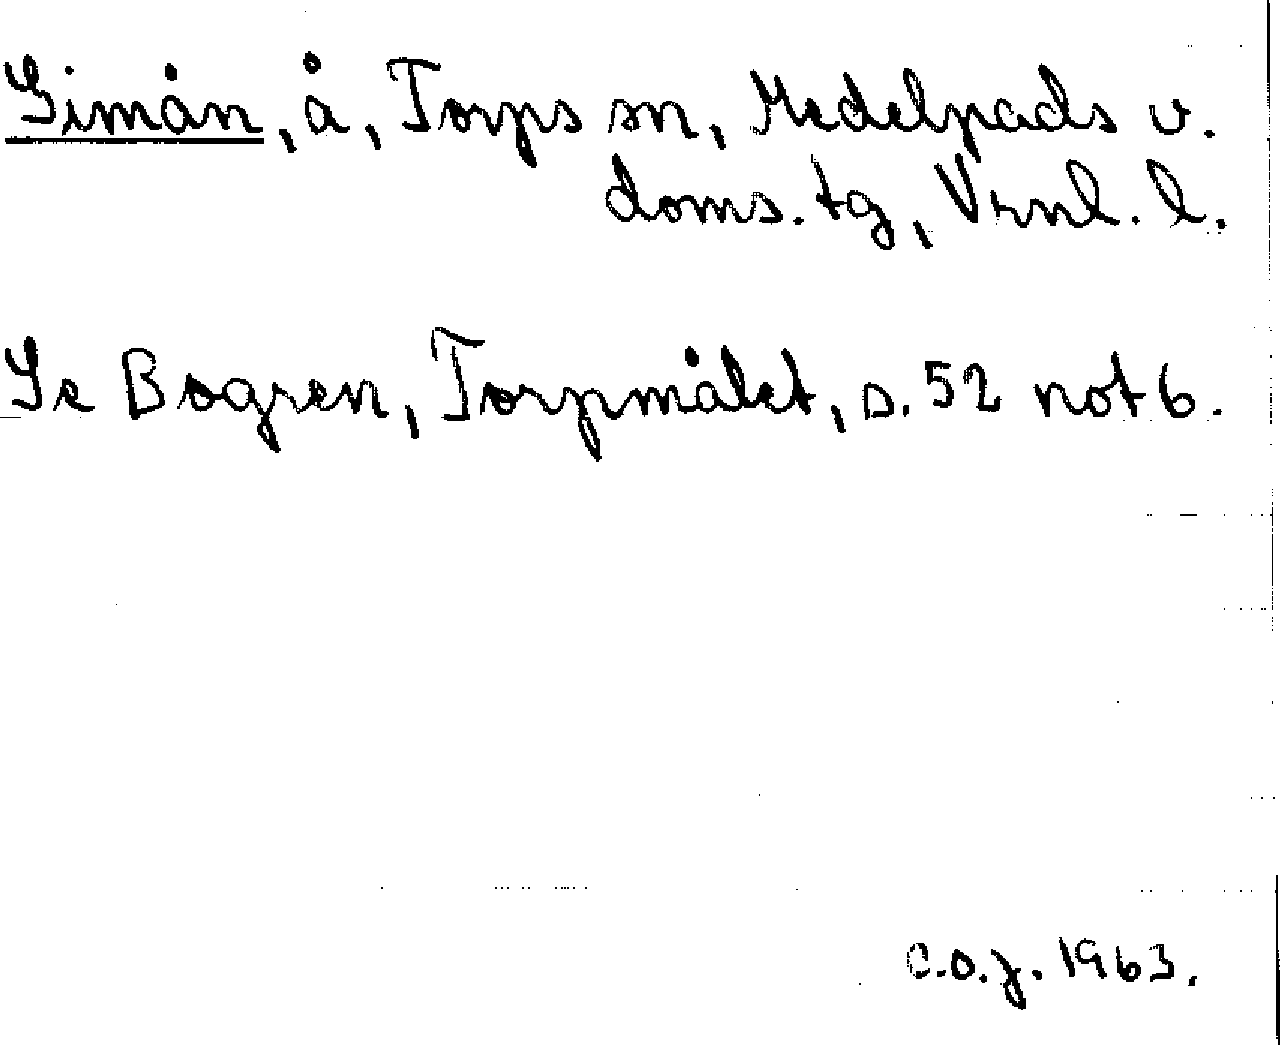 Gimån, å, Torps sn, Medelpads v.
doms. tg, Vrnl. l.
Se Bogren, Torpmålet, s. 52 not 6.
C.O.J. 1963.